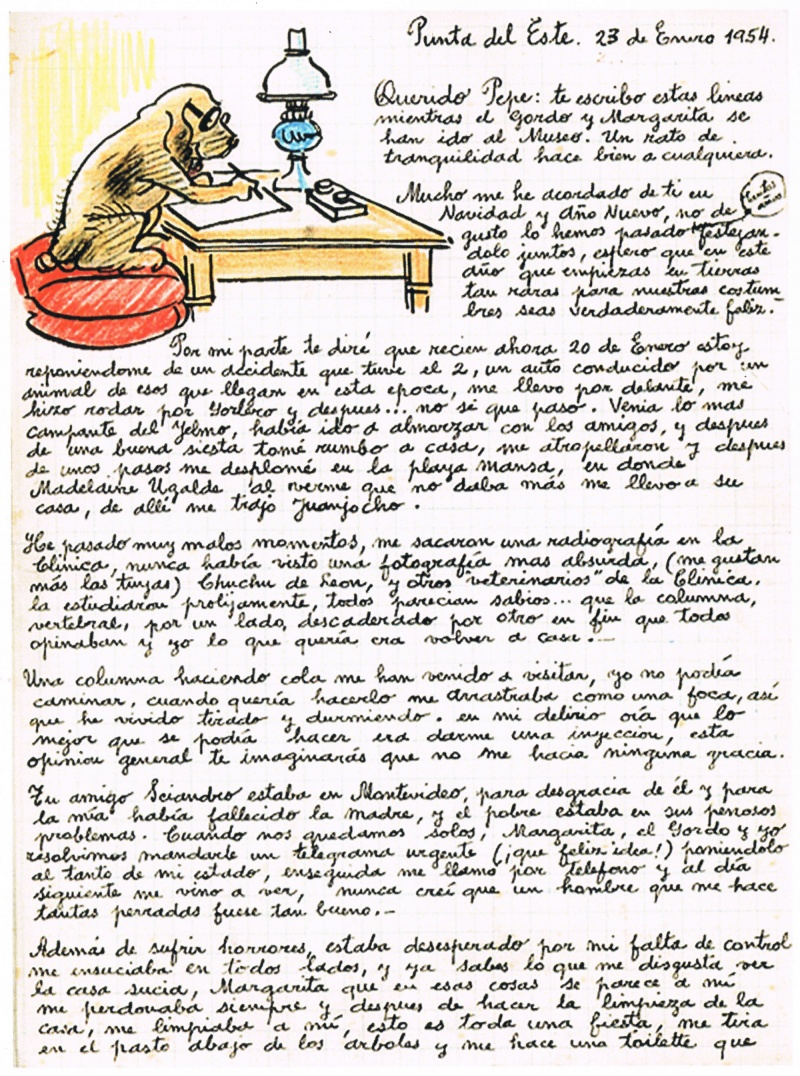 Punta del Este. 23 de Enero 1954.
Querido Pepe: te escribo estas lineas
mientras el Gordo y Margarita se
han ido al Museo. Un rato de
tranquilidad hace bien a cualquiera.
Mucho me he acordado de ti en
Navidad y Año Nuevo, no de
gusto lo hemos pasado festejan-
dolo juntos, espero que en este
año que empiezas en tierras
tan raras para nuestras costum
bres seas verdaderamente feliz.-
Por mi parte te diré que recien ahora 20 de Enero estoy
reponiendome de un accidente que tuve el 2, un auto conducido por un
animal de esos que llegan en esta epoca, me llevo por delante, me
hizo rodar por Gorlero y despues... no sé que paso. Venia lo mas
campante del Yelmo, había ido a almorzar con los amigos, y despues
de una buena siesta tomé rumbo a casa, me atropellaron y despues
de unos pasos me desplomé en la playa mansa, en donde
Madelaine Ugalde al verme que no daba más me llevo a su
casa, de allí me trajo Juanjocho.
He pasado muy malos momentos, me sacaron una radiografía en la
Clinica, nunca había visto una fotografía mas absurda, (me gustan
más las tuyas) Chuchu de Leon, y otros "veterinarios" de la Clinica,
la estudiaron prolijamente, todos parecian sabios... que la columna,
vertebral, por un lado, descaderado por otro en fin que todos
opinaban y yo lo que quería era volver a casa.-
Una columna haciendo cola me han venido a visitar, yo no podía
caminar, cuando quería hacerlo me arrastraba como una foca, así
que he vivido tirado y durmiendo. en mi delirio oía que lo
mejor que se podía hacer era darme una inyeccion, esta
opinion general te imaginarás que no me hacia ninguna gracia.
Tu amigo Sciandro estaba en Montevideo, para desgracia de él y para
la mía había fallecido la madre, y el pobre estaba en sus penosos
problemas. Cuando nos quedamos solos, Margarita, el Gordo y yo
resolvimos mandarle un telegrama urgente (¡que feliz idea!) poniendolo
al tanto de mi estado, enseguida me llamó por telefono y al día
siguiente me vino a ver, nunca creí que un hombre que me hace
tantas perradas fuese tan bueno.-
Además de sufrir horrores, estaba desesperado por mi falta de control
me ensuciaba en todos lados, y ya sabes lo que me disgusta ver
la casa sucia, Margarita que en esas cosas se parece a mí
me perdonaba siempre y despues de hacer la limpieza de la
casa, me limpiaba a mí, esto es toda una fiesta, me tira
en el pasto abajo de los arboles y me hace una toilette que